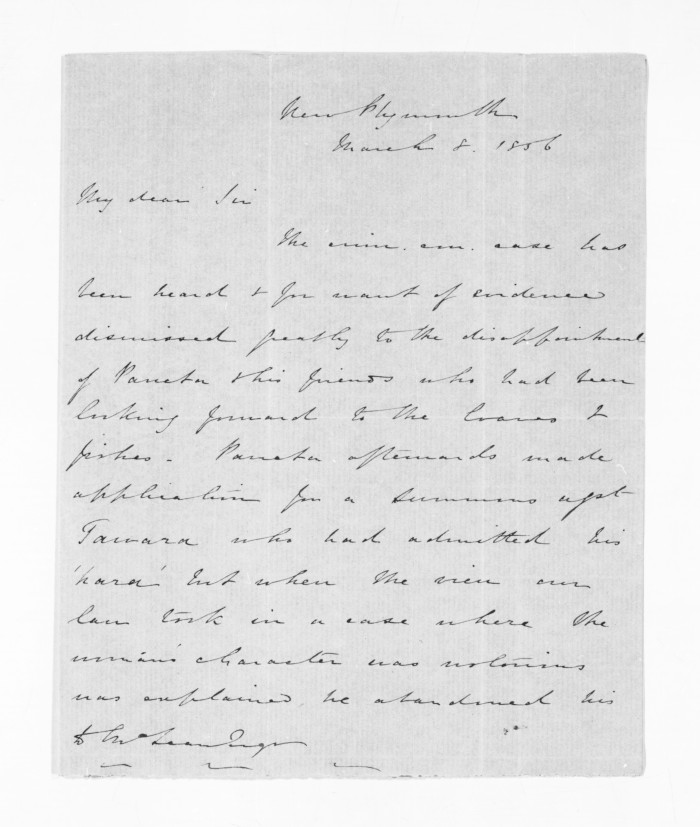 New Plymouth
March 8. 1856
My dear Sir
The crim. con. case has
been heard & for want of evidence
dismissed greatly to the disappointment
of Paneta & his friends who had been
looking forward to the loaves &
fishes. Paneta afterwards made
application for a summons agst
Tamara who had admitted his
'hara' but when the view our
law took in a case where the
woman's character was notorious
was explained he abandoned his
McLean Esqr